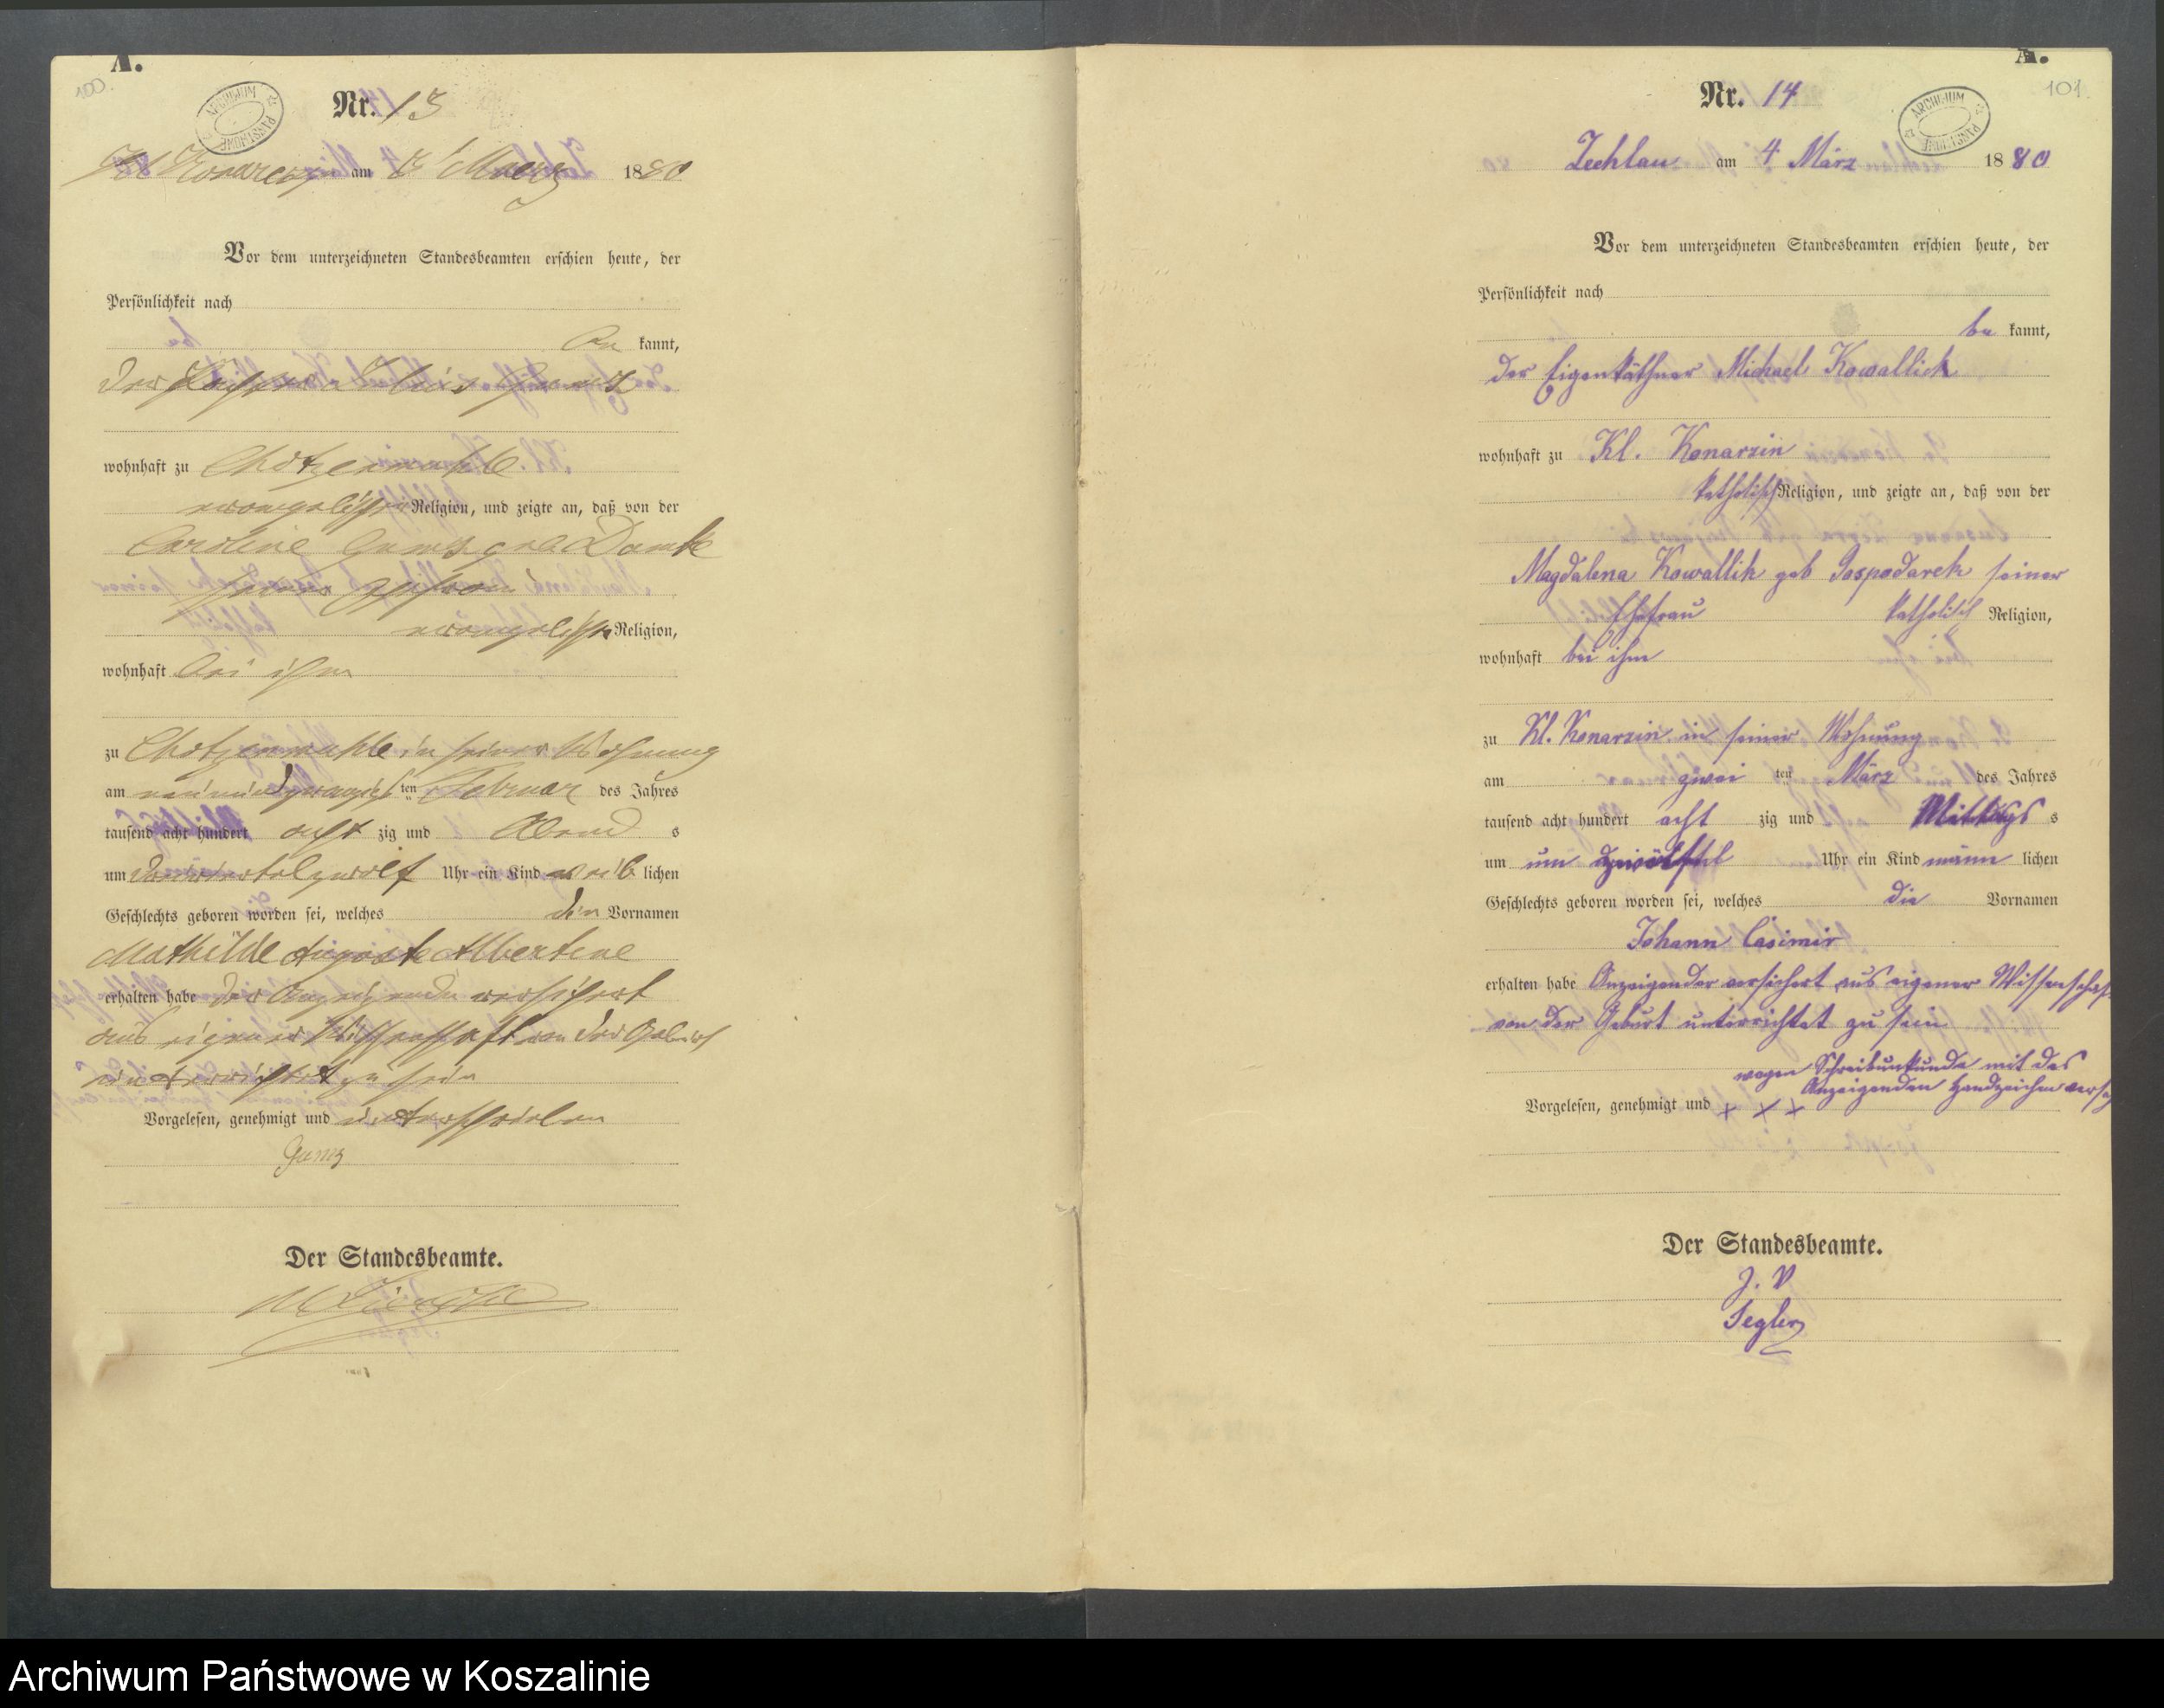 A.
100.
ARCHIWUM PAŃSTWOWE
Nr. 13
Kl Konarczyn am 2 Maerz 1880
Vor dem unterzeichneten Standesbeamten erschien heute, der
Persönlichkeit nach
be kannt,
der
wohnhaft zu Chotzenmühle
evangelischer Religion, und zeigte an, daß von der
Caroline Gumz geb Damke
seiner Ehefrau
evangelischer Religion,
wohnhaft bei ihm
zu Chotzenmuhle in seiner Wohnung
am neunundzwanzigsten Februar des Jahres
tausend acht hundert acht zig und Abend s
um dreiviertelzwölf Uhr ein Kind weib lichen
Geschlechts geboren worden sei, welches den Vornamen
Mathilde Auguste Albertine
erhalten habe Der Anzeigende versichert
aus eigener Wissenschaft von der Geburt
unterrichtet zu sein
Vorgelesen, genehmigt und unterschrieben
Gumz
Der Standesbeamte.
A.
101.
ARCHIWUM PAŃSTWOWE
Nr. 14
Zechlau am 4 März 1880
Vor dem unterzeichneten Standesbeamten erschien heute, der
Persönlichkeit nach
be kannt,
der Eigenkäthner Michael Kowallick
wohnhaft zu Kl. Konarzin
katholisch Religion, und zeigte an, daß von der
Magdalena Kowallik geb Gospodarek seiner
Ehefrau katholisch Religion,
wohnhaft bei ihm
zu Kl. Konarzin in seiner Wohnung
am zwei ten März des Jahres
tausend acht hundert acht zig und Mittags s
um um zwölf Uhr ein Kind männ lichen
Geschlechts geboren worden sei, welches die Vornamen
Johann Casimir
erhalten habe Anzeigender versichert aus eigener Wissenschaft
von der Geburt unterrichtet zu sein
wegen Schreibunkunde mit des
Anzeigenden Handzeichen verseh
Vorgelesen, genehmigt und x x x
Der Standesbeamte.
J. V
Segler
Archiwum Państwowe w Koszalinie